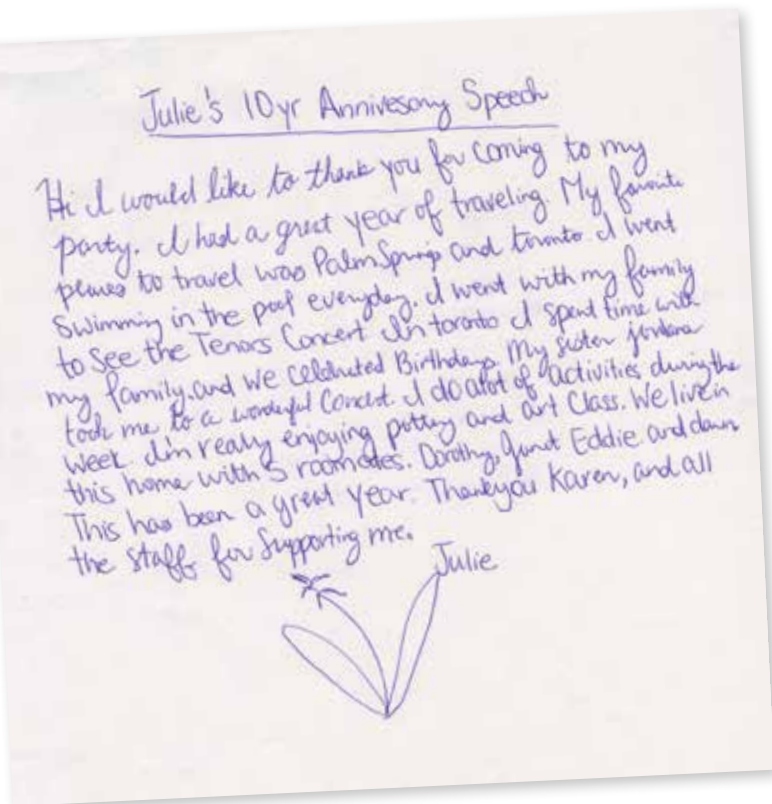 Julie's 10yr Annivesary Speech
Hi I would like to thank you for coming to my
party. I had a great year of traveling. My favorite
places to travel was Palm Springs and toronto I went
Swimming in the pool everyday. I went with my family
to See the Tenors Concert In toronto I spent time with
my family. and we celebrated Birthdays. My sister jordana
took me to a wonderful Concert. I do alot of activities during the
week I'm really enjoying pottery and art Class. We live in
this home with 5 roomates. Dorothy, Janet Eddie and dawn.
This has been a great Year. Thankyou Karen, and all
the Staff for Supporting me.
Julie